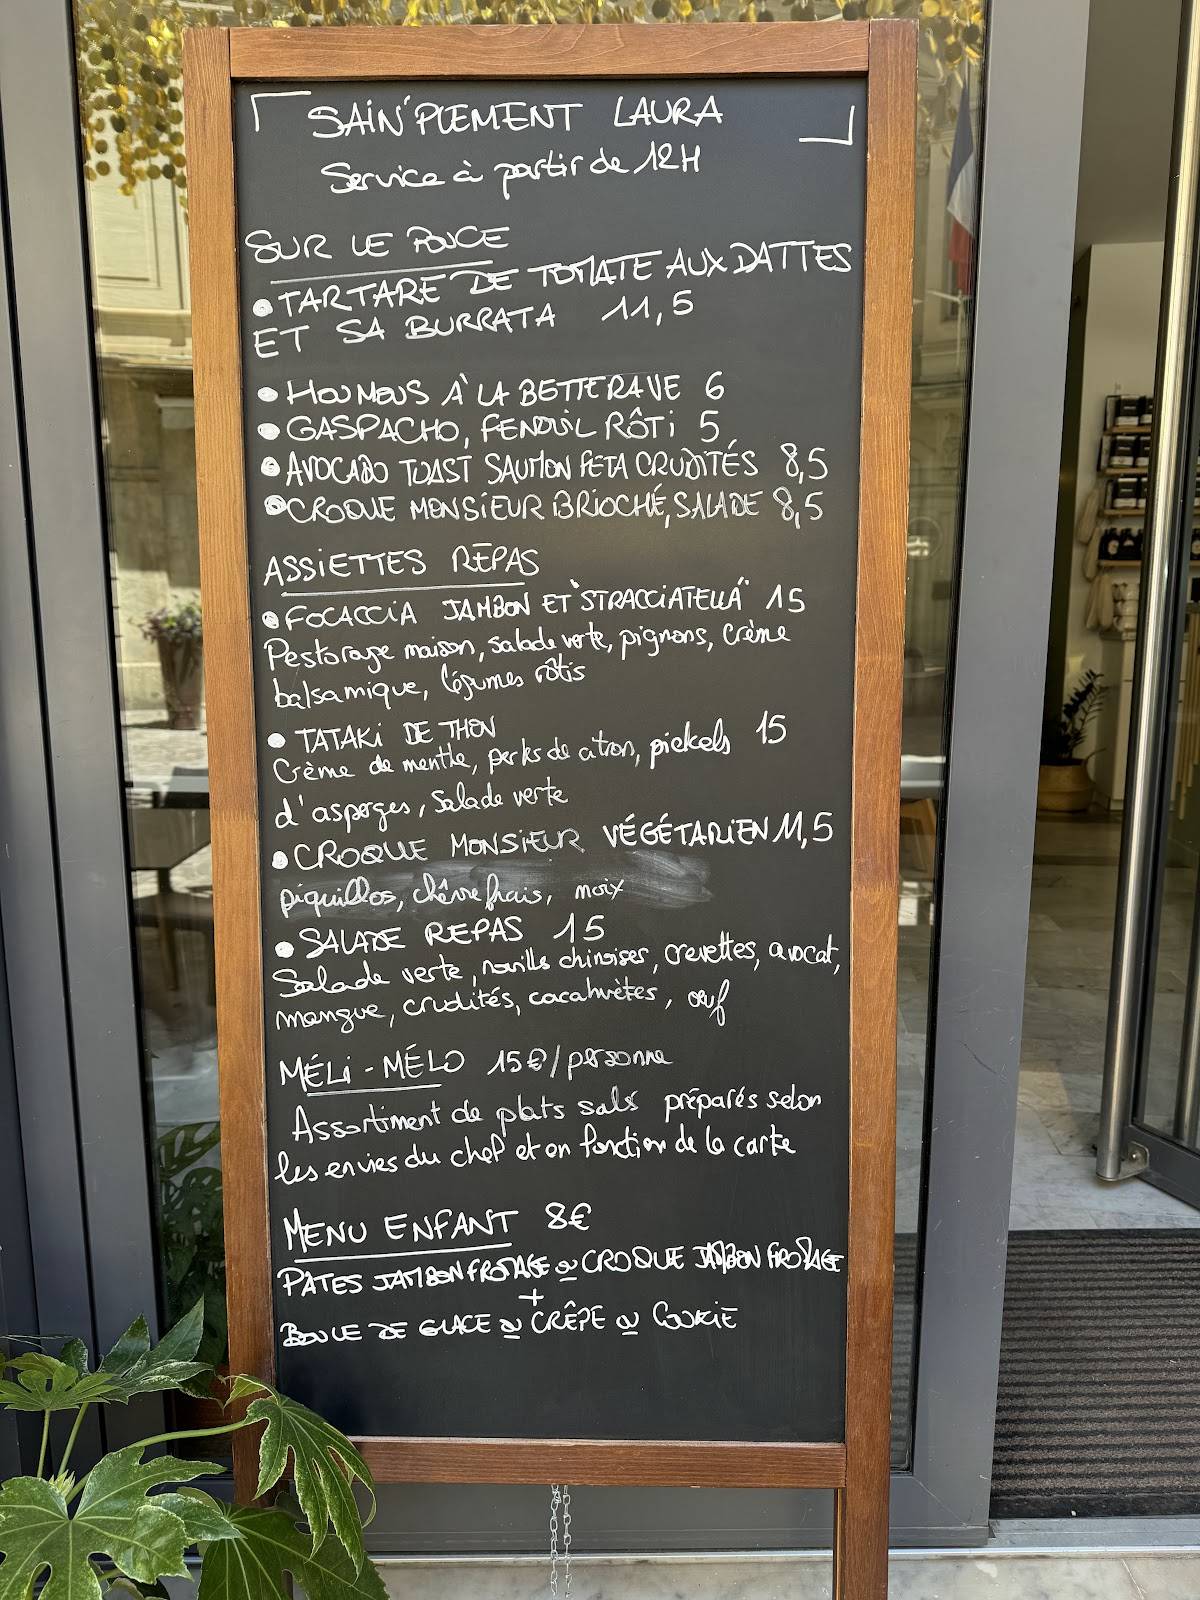 SAIN'PLEMENT LAURA
Service à partir de 12H
SUR LE POUCE
• TARTARE DE TOMATE AUX DATTES
ET SA BURRATA 11,5
• HOUMOUS À LA BETTERAVE 6
• GASPACHO, FENOUIL RÔTI 5
• AVOCADO TOAST SAUMON FETA CRUDITÉS 8,5
• CROQUE MONSIEUR BRIOCHÉ, SALADE 8,5
ASSIETTES REPAS
• FOCACCIA JAMBON ET "STRACCIATELLA" 15
Pestorage maison, salade verte, pignons, crème
balsamique, légumes rôtis
• TATAKI DE THON
Crème de menthe, perles de citron, pickels 15
d'asperges, salade verte
• CROQUE MONSIEUR VÉGÉTARIEN 11,5
piquillos, chèvre frais, noix
• SALADE REPAS 15
Salade verte, nouilles chinoises, crevettes, avocat,
mangue, crudités, cacahuètes, œuf
MÉLI-MÉLO 15€/personne
Assortiment de plats salés préparés selon
les envies du chef et en fonction de la carte
MENU ENFANT 8€
PATES JAMBON FROMAGE ou CROQUE JAMBON FROMAGE
+
BOULE DE GLACE ou CRÊPE ou COOKIE